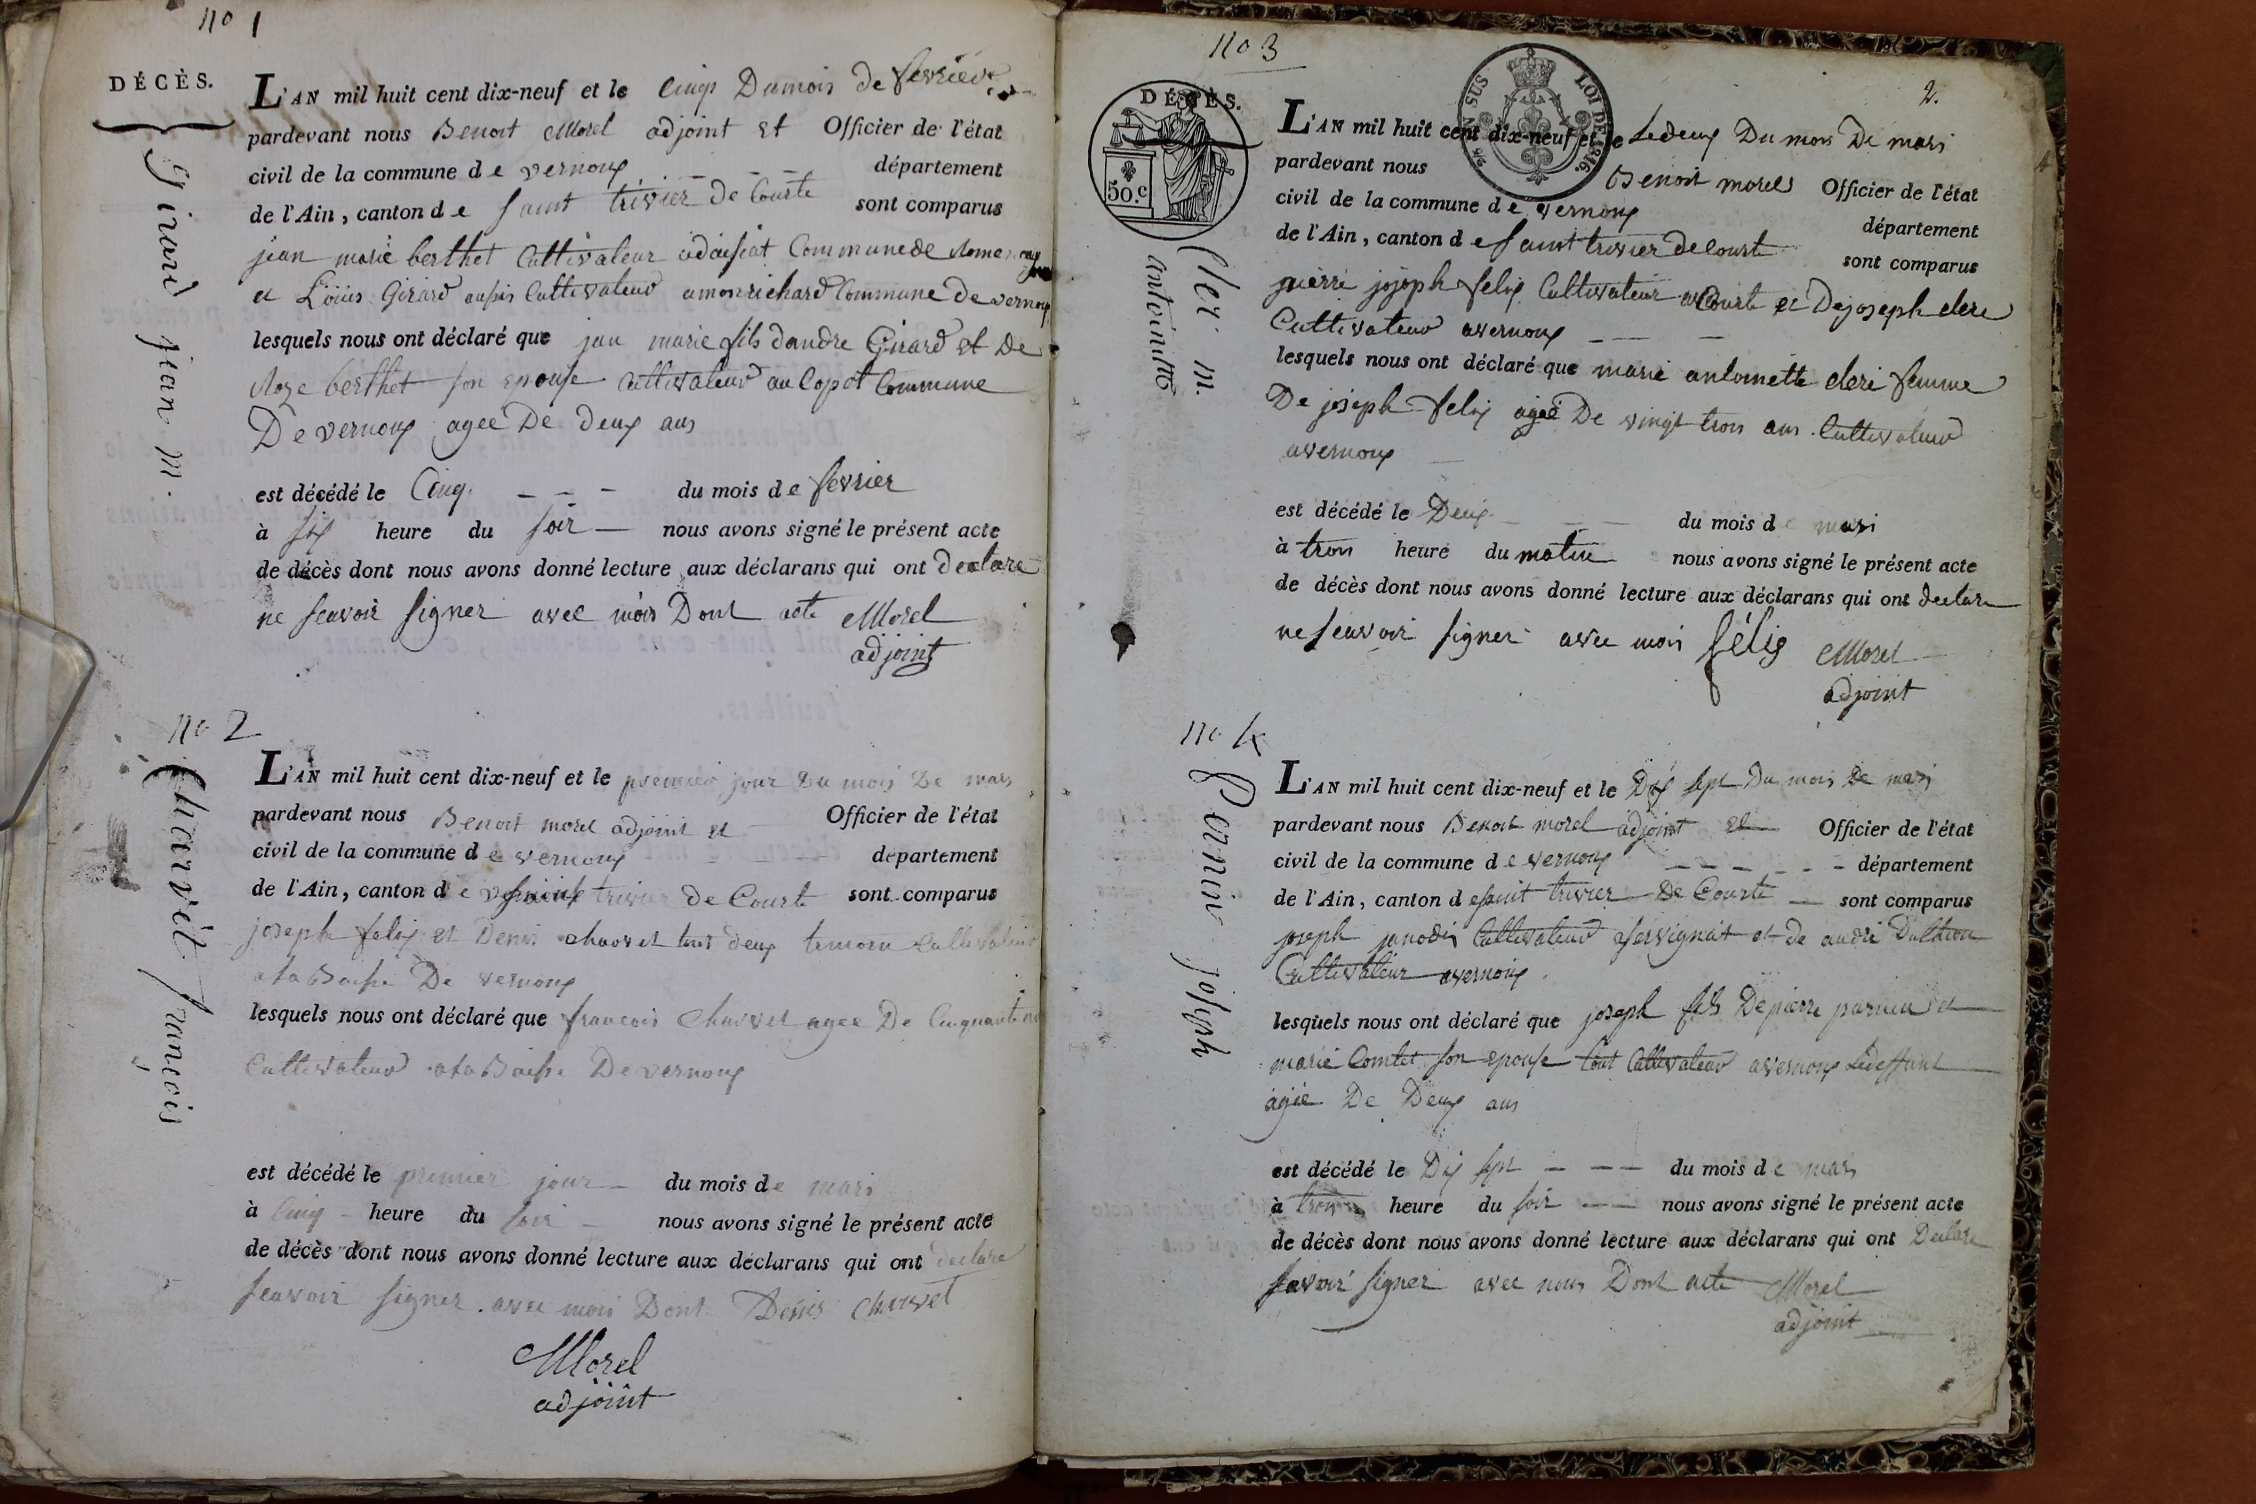 no 1
DÉCÈS.
Girard jean m.
L'AN mil huit cent dix-neuf et le cinqs Du mois de fevrier
pardevant nous Benoit Morel adjoint et Officier de l'état
civil de la commune de vernoux département
de l'Ain, canton de saint trivier de Courte sont comparus
jean marie berthet Cultivateur Commune de
et Loüis Girard Cultivateur a monrichard Commune de vernoux
lesquels nous ont déclaré que jan marie fils dandre Girard et De
Roze berthet son epouse Cultivateur au Commune
De vernoux agee De deux ans
est décédé le Cinq du mois de fevrier
à six heure du soir nous avons signé le présent acte
de décès dont nous avons donné lecture aux déclarans qui ont declare
ne scavoir signer avec mois Dont acte Morel
adjoint
no 2
Charvét françois
L'AN mil huit cent dix-neuf et le premier jour Du mois De mars
pardevant nous Benoit morel adjoint et Officier de l'état
civil de la commune de vernoux département
de l'Ain, canton de trivier de Courte sont comparus
joseph felix et Denis chauvet tous deux temoin Cultivateur
De vernoux
lesquels nous ont déclaré que francois Chauvet agee De
Cultivateur De vernoux
est décédé le premier jour du mois de mars
à Cinq heure du soir nous avons signé le présent acte
de décès dont nous avons donné lecture aux déclarans qui ont declare
scavoir signer avec mois Dont Denis Chauvet
Morel
adjoint
no 3
2.
DÉCÈS.
50.c
EN SUS
LOI DE 1816
Cler m.
antoinette
L'AN mil huit cent dix-neuf et le Le deux Du mois De mars
pardevant nous Benoit morel Officier de l'état
civil de la commune de vernoux département
de l'Ain, canton de saint trivier de court sont comparus
joseph felix Cultivateur a Courte et De joseph clere
Cultivateur a vernoux
lesquels nous ont déclaré que marie antoinette clere femme
De joseph felix agee De vingt trois ans Cultivateur
a vernoux
est décédé le Deux du mois de mars
à trois heure du matin nous avons signé le présent acte
de décès dont nous avons donné lecture aux déclarans qui ont declare
ne scavoir signer avec mois félix Morel
adjoint
no 4
Pernin joseph
L'AN mil huit cent dix-neuf et le Dix sept Du mois De mars
pardevant nous Benoit morel adjoint et Officier de l'état
civil de la commune de vernoux département
de l'Ain, canton de saint trivier De Courte sont comparus
joseph Cultivateur a servignat et de andré
Cultivateur a vernoux
lesquels nous ont déclaré que joseph fils De pierre et
marie Comtet son epouse tout Cultivateur a vernoux Ledeffunt
agée De Deux ans
est décédé le Dix sept du mois de mars
à trois heure du soir nous avons signé le présent acte
de décès dont nous avons donné lecture aux déclarans qui ont Declare
savoir signer avec nous Dont acte Morel
adjoint